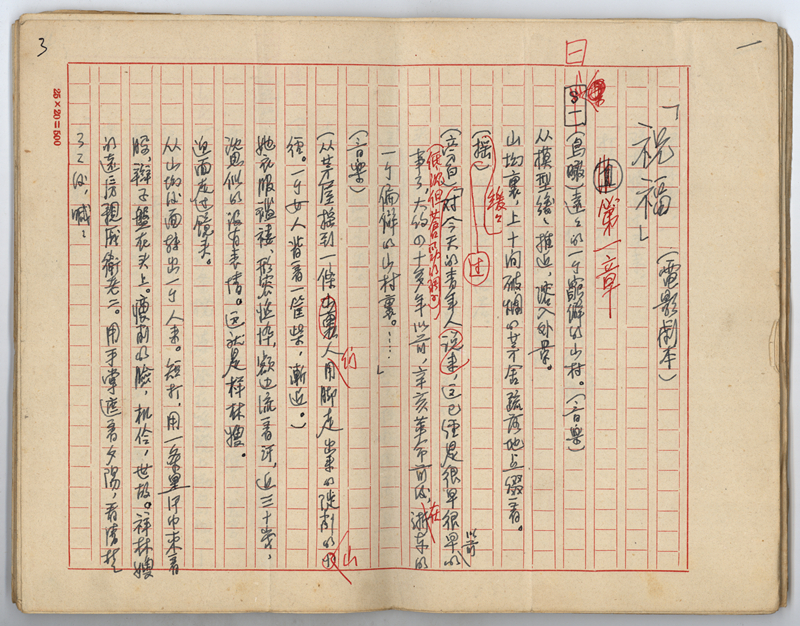 一
「祝福」
(電影劇本)
第一章
日
(鳥瞰)遠々的一个窮僻的山村。(音樂)
從模型缓々推近,溶入外景。
山坳裏,上十间破爛的茅舍疏落地点缀着。
(摇) 缓々 过
(旁白)「对今天的青年人说来,这已经是很早很早以前的
事了,大约四十多年以前,辛亥革命前后,在浙东的
一个偏僻的山村裏。……」
(音樂)
(从茅屋摇到一條由人用脚走出来的陡削的山
徑。一个女人背着一筐柴,漸近。)
她衣服襤褸,形容憔悴,额上流着汗,近三十歲,
似的没有表情。这就是祥林嫂。
迎面走过镜头。
从山坳后面转出一个人来。短打,用一条黑汗巾束着
腰,辮子盤在头上。瘦削的臉,机伶,世故。祥林嫂
的遠房親戚衛老二。用手掌遮着夕陽,看清楚
了之后,喊:
25×20=500
3